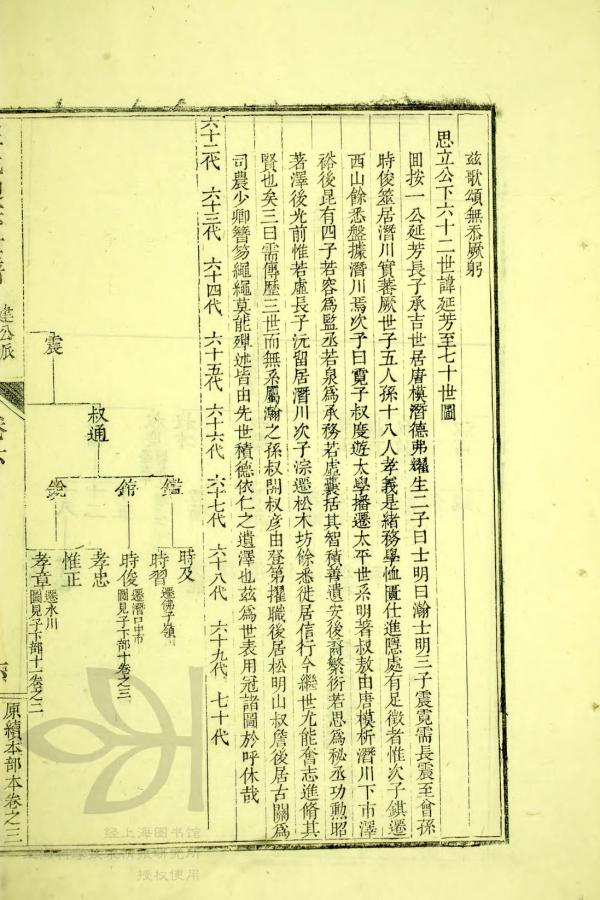 兹歌頌無忝厥躬
思立公下六十二世諱延芳至七十世圖
回按一公延芳長子承吉世居唐模潛德弗耀生二子曰士明曰瀚士明三子震霓需長震至曾孫
時俊筮居潛川實蕃厥世子五人孫十八人孝義是緒務學恤匱仕進隱處有足徵者惟次子錤遷
西山餘悉盤據潛川焉次子曰霓子叔度遊太學播遷太平世系明著叔敖由唐模析潛川下市澤
裕後昆有四子若容為監丞若泉為承務若虛囊括其智積善遺安後裔繁衍若思為秘丞功勲昭
著澤後光前惟若虛長子沅留居潛川次子淙遷松木坊餘悉徙居信行今繼世尤能奮志進脩其
賢也矣三曰需傳歷三世而無系屬瀚之孫叔開叔彥由登第擢職後居松明山叔詹後居古關為
司農少卿簪笏繩繩莫能殫述皆由先世積德依仁之遺澤也茲為世表用冠諸圖於呼休哉
六十二代 六十三代 六十四代 六十五代 六十六代 六十七代 六十八代 六十九代 七十代
震
叔通
鑑
時及
時習 遷佛子嶺
錧
時俊 遷潛口中市 圖見子下部十卷之三
孝忠
惟正
孝章 遷水川 圖見子下部十一卷之二
建公派
原續本部本卷之三
经上海图书馆
授权使用